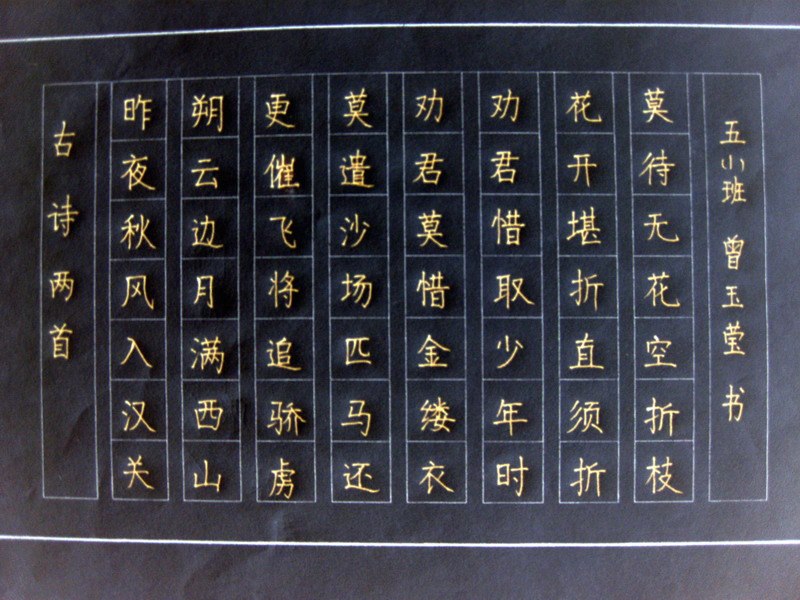 古诗两首
昨夜秋风入汉关
朔云边月满西山
更催飞将追骄虏
莫遣沙场匹马还
劝君莫惜金缕衣
劝君惜取少年时
花开堪折直须折
莫待无花空折枝
五(小)班 曾玉莹 书